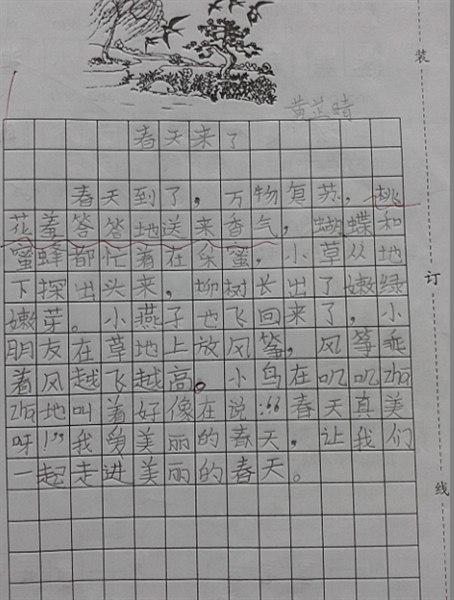 黄芷晴
春天来了
春天到了，万物复苏，桃
花羞答答地送来香气，蝴蝶和
蜜蜂都忙着在采蜜，小草从地
下探出头来，柳树长出了嫩绿
嫩芽。小燕子也飞回来了，小
朋友在草地上放风筝，风筝乘
着风越飞越高。小鸟在叽叽zha
zha地叫着好像在说:“春天真美
呀!”我爱美丽的春天，让我们
一起走进美丽的春天。
装
订
线